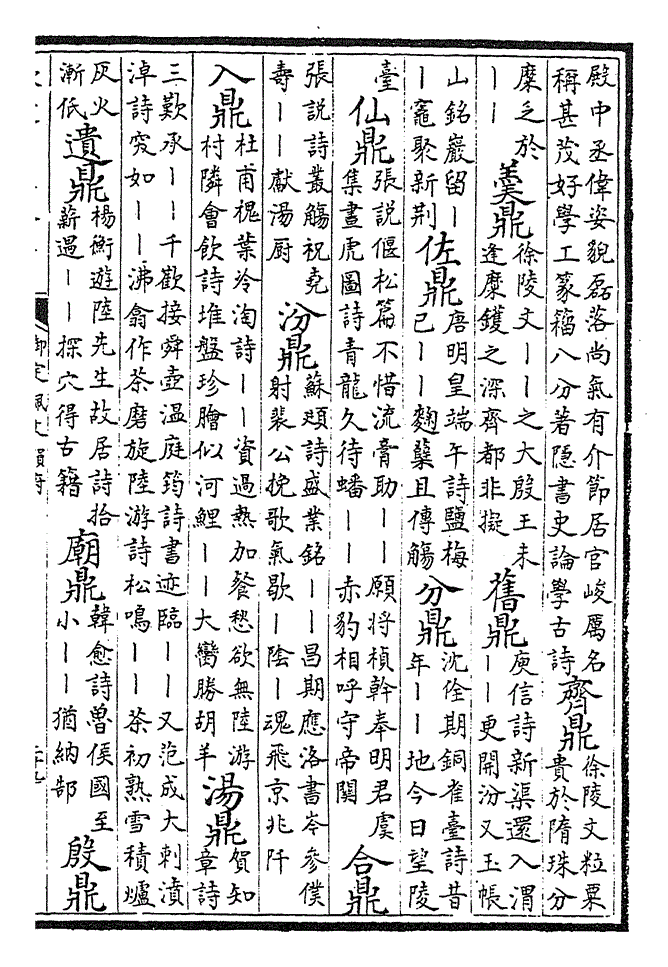 殿中丞偉姿貌磊落尚氣有介節居官峻厲名
稱甚茂好學工篆籀八分著隱書史論學古詩
齊鼎
徐陵文粒粟
貴於隋珠分
糜乏於
丨丨
羹鼎
徐陵文丨丨之大殷王未
逢糜鑊之深齊都非擬
舊鼎
庾信詩新渠還入渭
丨丨更開汾又玉帳
山銘巖留丨
丨竈聚新荆
佐鼎
唐明皇端午詩鹽梅
已丨丨麴糵且傳觴
分鼎
沈佺期銅雀臺詩昔
年丨丨地今日望陵
臺
仙鼎
張説偃松篇不惜流膏助丨丨願將楨幹奉明君虞
集畫虎圖詩青龍久待蟠丨丨赤豹相呼守帝關
合鼎
張説詩叢觴祝堯
壽丨丨獻湯厨
汾鼎
蘇頲詩盛業銘丨丨昌期應洛書岑參僕
射裴公挽歌氣歇丨陰丨魂飛京兆阡
入鼎
杜甫槐葉冷淘詩丨丨資過熟加餐愁欲無陸游
村隣會飲詩堆盤珍膾似河鯉丨丨大臠勝胡羊
湯鼎
賀知
章詩
三歎承丨丨千歡接舜壺温庭筠詩書迹臨丨丨又范成大刺濆
淖詩突如丨丨沸翕作茶磨旋陸游詩松鳴丨丨茶初熟雪積爐
灰火
漸低
遺鼎
楊衡遊陸先生故居詩拾
薪遇丨丨探穴得古籍
廟鼎
韓愈詩魯侯國至
小丨丨猶納郜
殷鼎